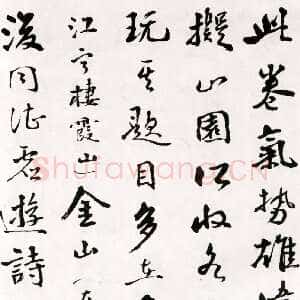 此卷氣勢雄
擬山園所收
玩其題目多在
江寧棲霞山金山
後同君遊詩
Shufawang.CN